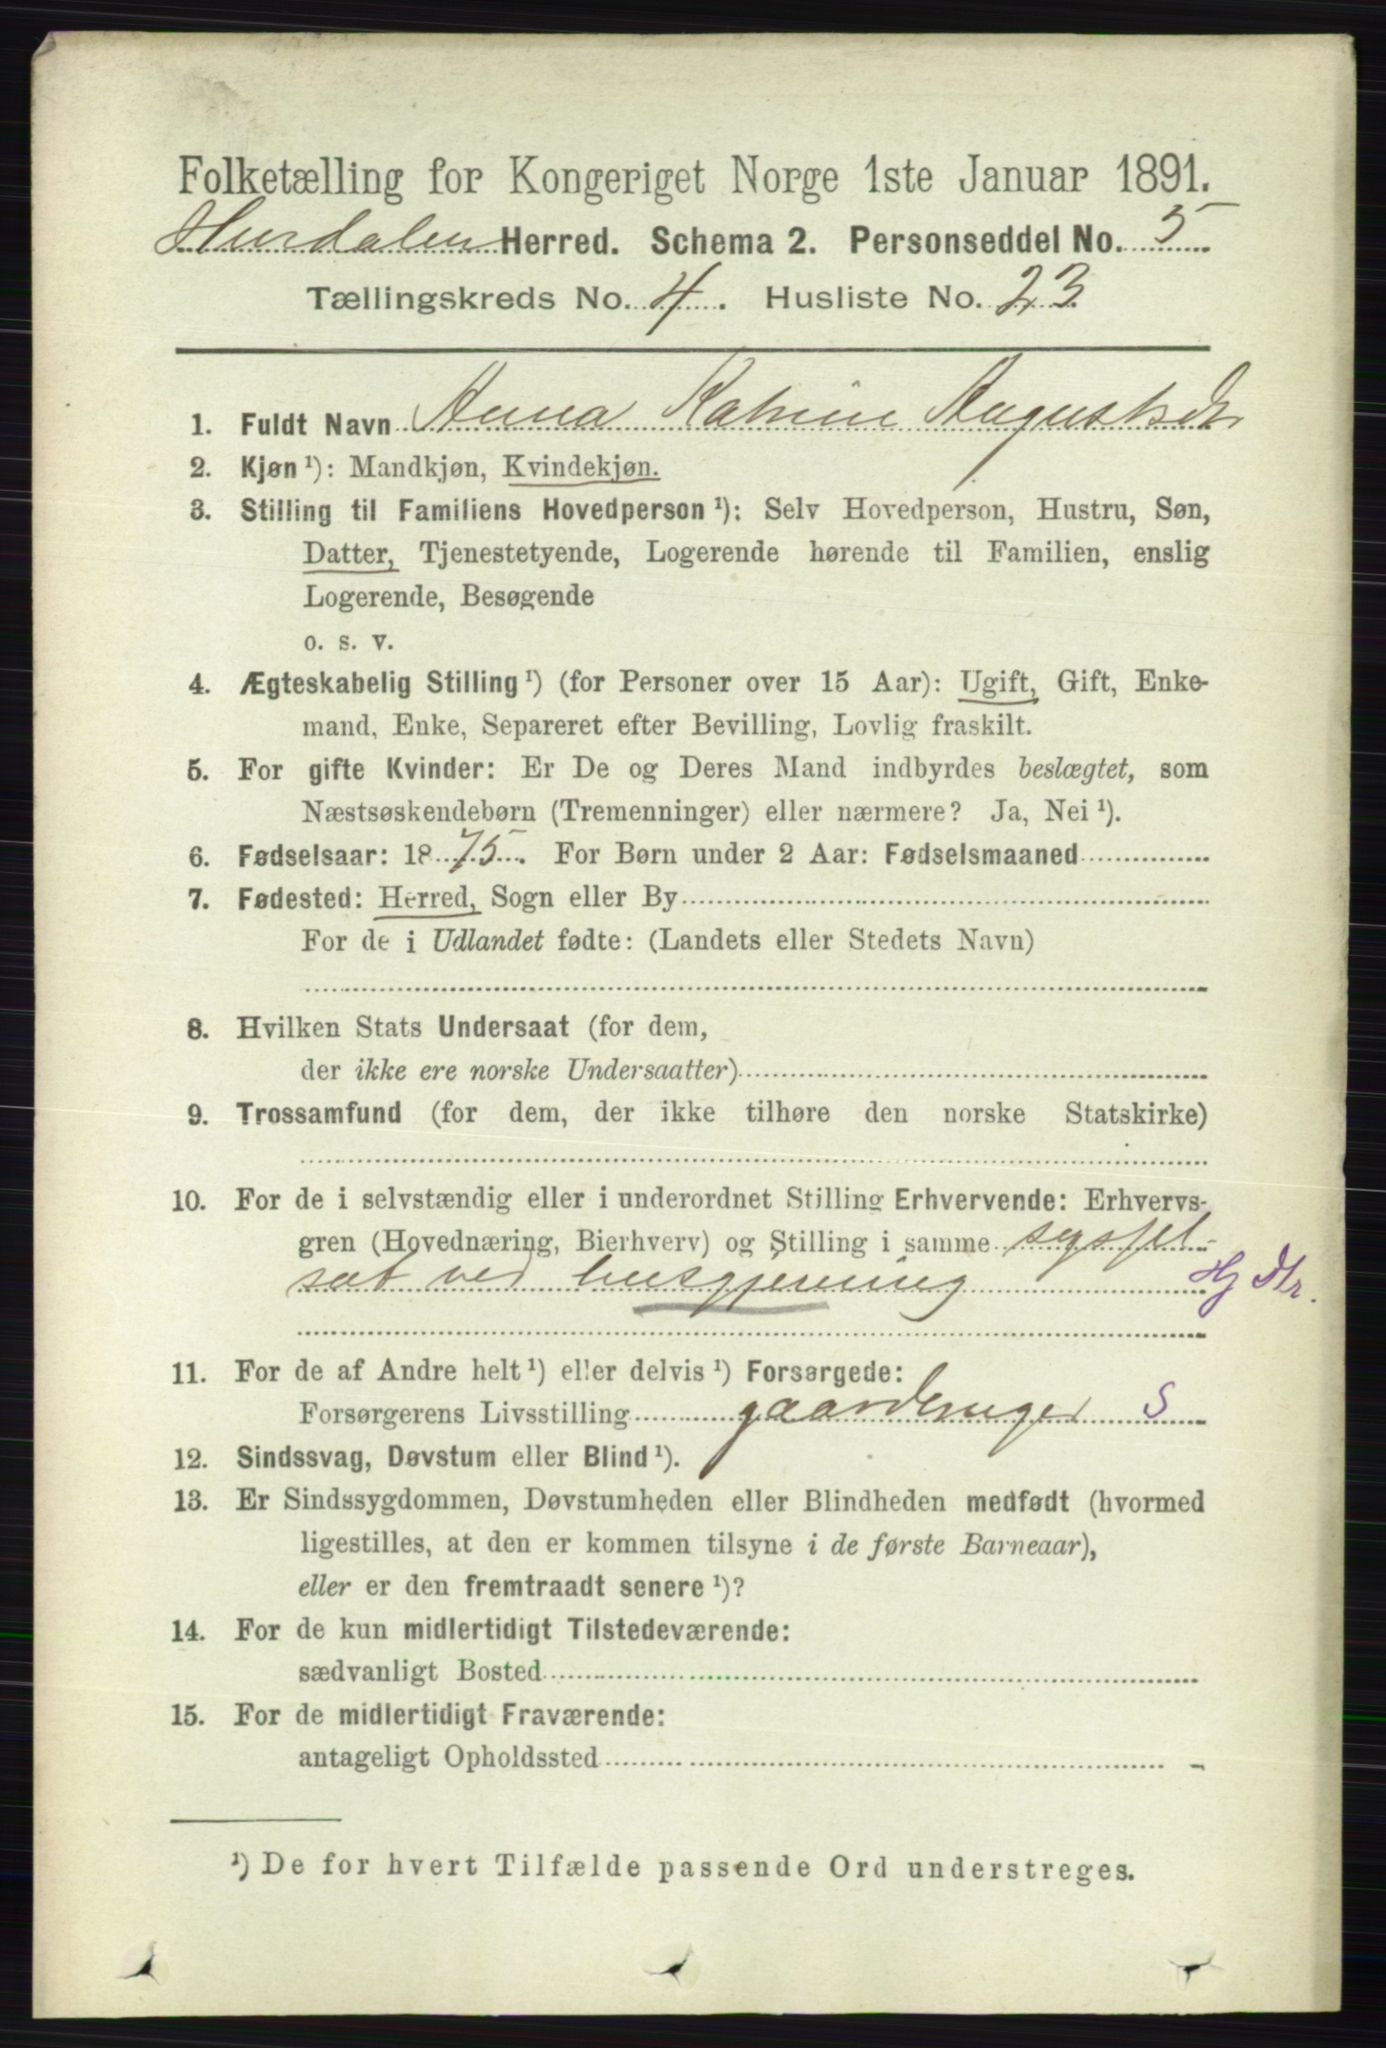 Folketælling for Kongeriget Norge 1ste Januar 1891.
Hurdalen Herred. Schema 2. Personseddel No. 5
Tællingskreds No. 4. Husliste No. 23
1. Fuldt Navn Anna Katrine Augustsdtr
2. Kjøn ¹): Mandkjøn, Kvindekjøn.
3. Stilling til Familiens Hovedperson ¹): Selv Hovedperson, Hustru, Søn,
Datter, Tjenestetyende, Logerende hørende til Familien, enslig
Logerende, Besøgende
o. s. v.
4. Ægteskabelig Stilling ¹) (for Personer over 15 Aar): Ugift, Gift, Enke-
mand, Enke, Separeret efter Bevilling, Lovlig fraskilt.
5. For gifte Kvinder: Er De og Deres Mand indbyrdes beslægtet, som
Næstsøskendebørn (Tremenninger) eller nærmere? Ja, Nei ¹).
6. Fødselsaar: 1875. For Børn under 2 Aar: Fødselsmaaned
7. Fødested: Herred, Sogn eller By
For de i Udlandet fødte: (Landets eller Stedets Navn)
8. Hvilken Stats Undersaat (for dem,
der ikke ere norske Undersaatter)
9. Trossamfund (for dem, der ikke tilhøre den norske Statskirke)
10. For de i selvstændig eller i underordnet Stilling Erhvervende: Erhvervs-
gren (Hovednæring, Bierhverv) og Stilling i samme syssel-
sat ved husgjerning Hj Dtr.
11. For de af Andre helt ¹) eller delvis ¹) Forsørgede:
Forsørgerens Livsstilling gaardbruger S
12. Sindssvag, Døvstum eller Blind ¹).
13. Er Sindssygdommen, Døvstumheden eller Blindheden medfødt (hvormed
ligestilles, at den er kommen tilsyne i de første Barneaar),
eller er den fremtraadt senere ¹)?
14. For de kun midlertidigt Tilstedeværende:
sædvanligt Bosted
15. For de midlertidigt Fraværende:
antageligt Opholdssted
¹) De for hvert Tilfælde passende Ord understreges.